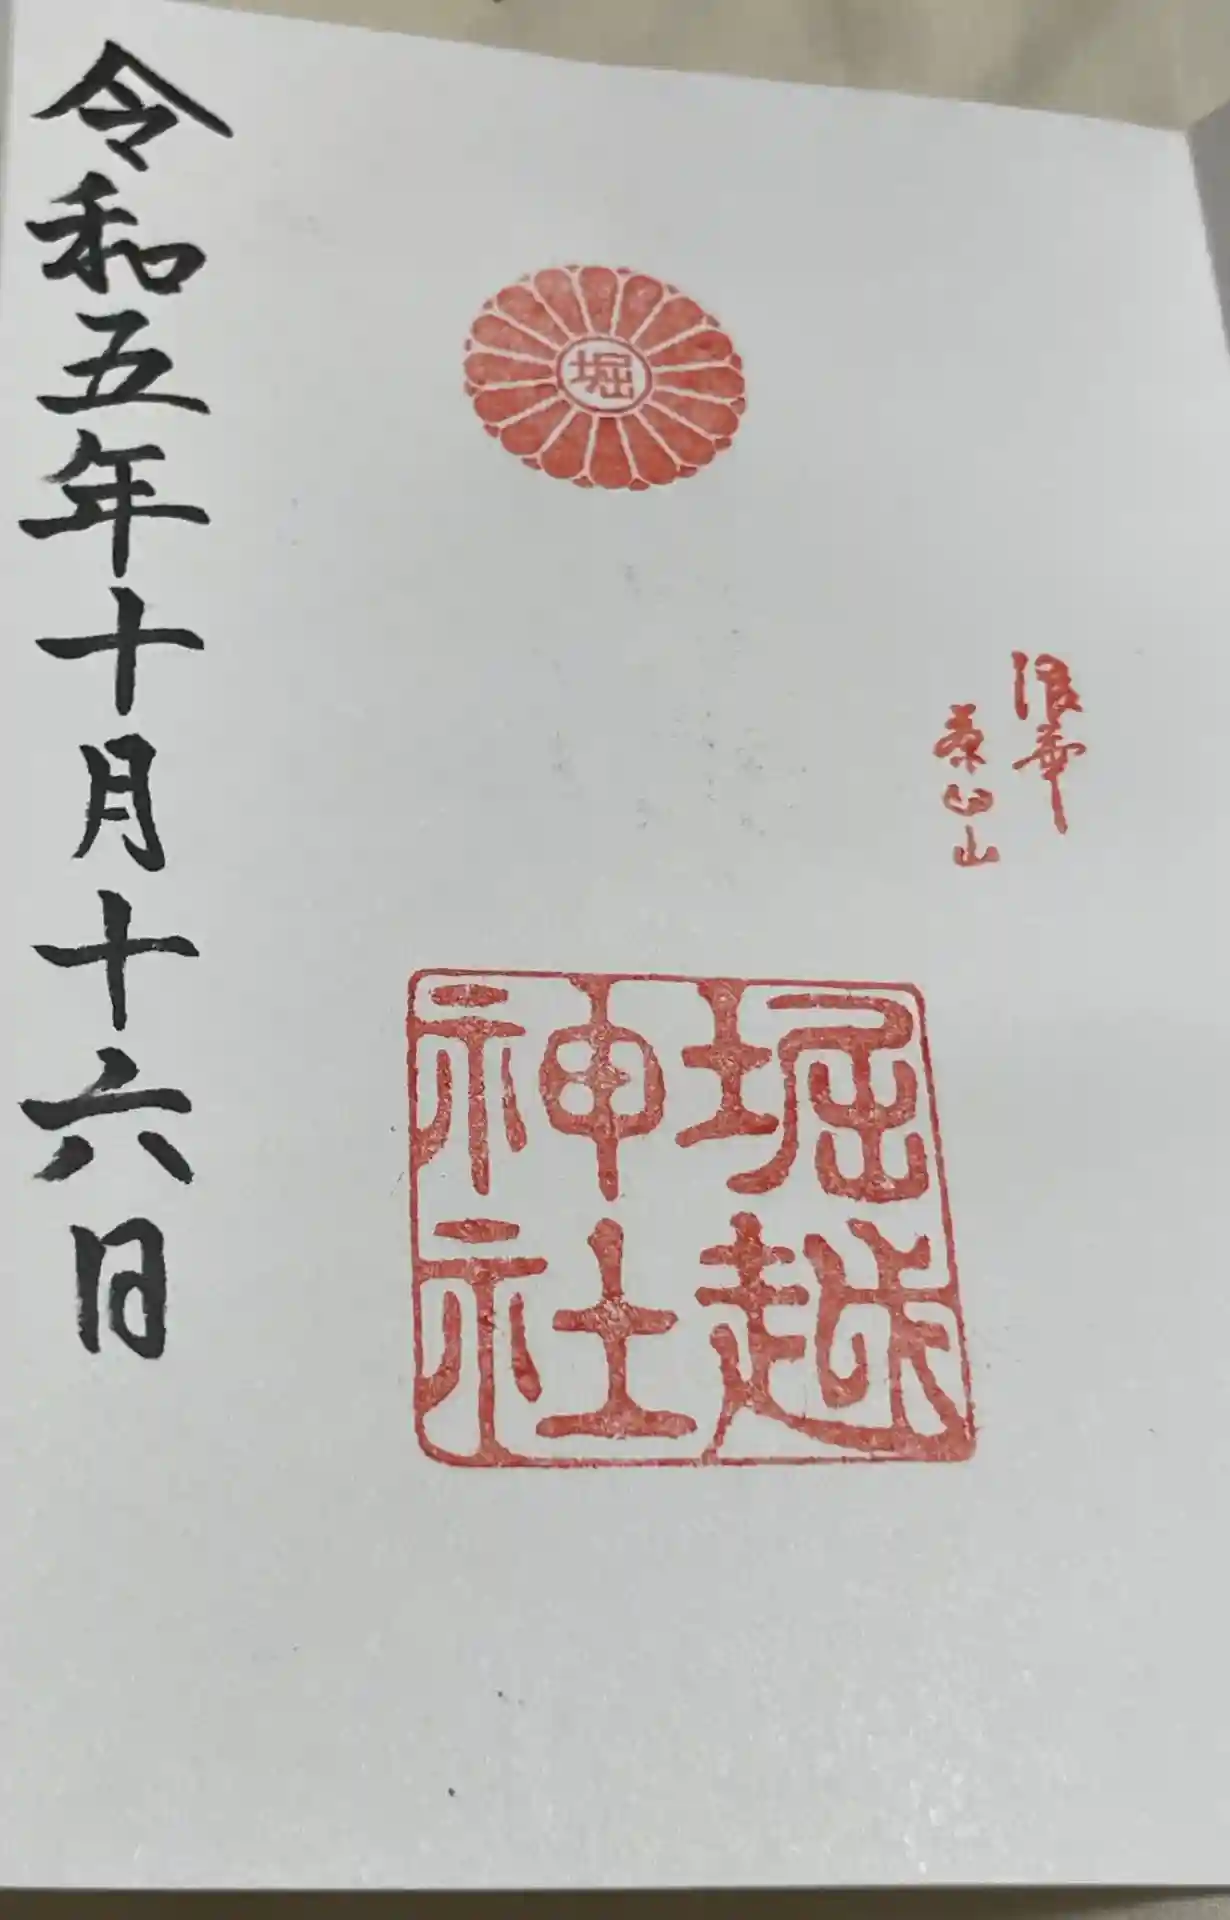 浪華
茶臼山
堀
堀越
神社
令和五年十月十六日